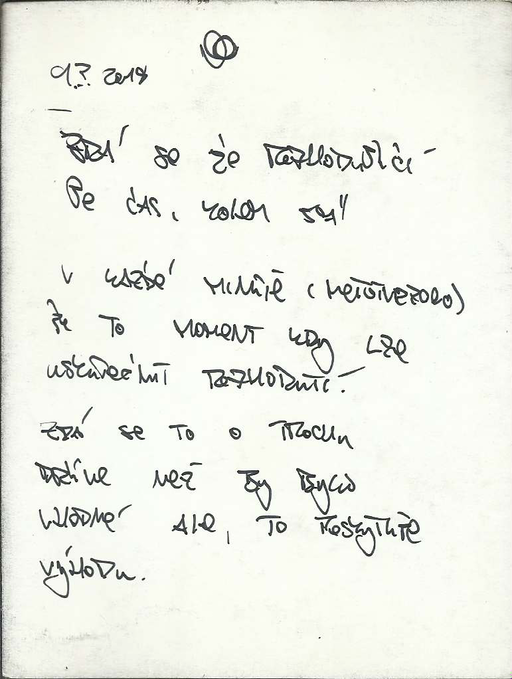 9.?. 2019
ZDÁ se že rozhodující
Je čas,
v každé minutě (
že to moment kdy lze
uskutečnit rozhodnutí.
zdá se to o trochu
dříve než by bylo
vhodné ale, to poskytuje
výhodu.